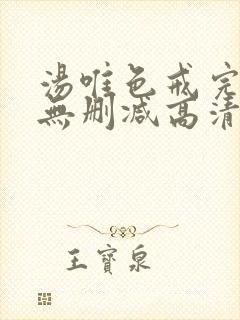 湯唯色戒完
無删减高清
王寶泉